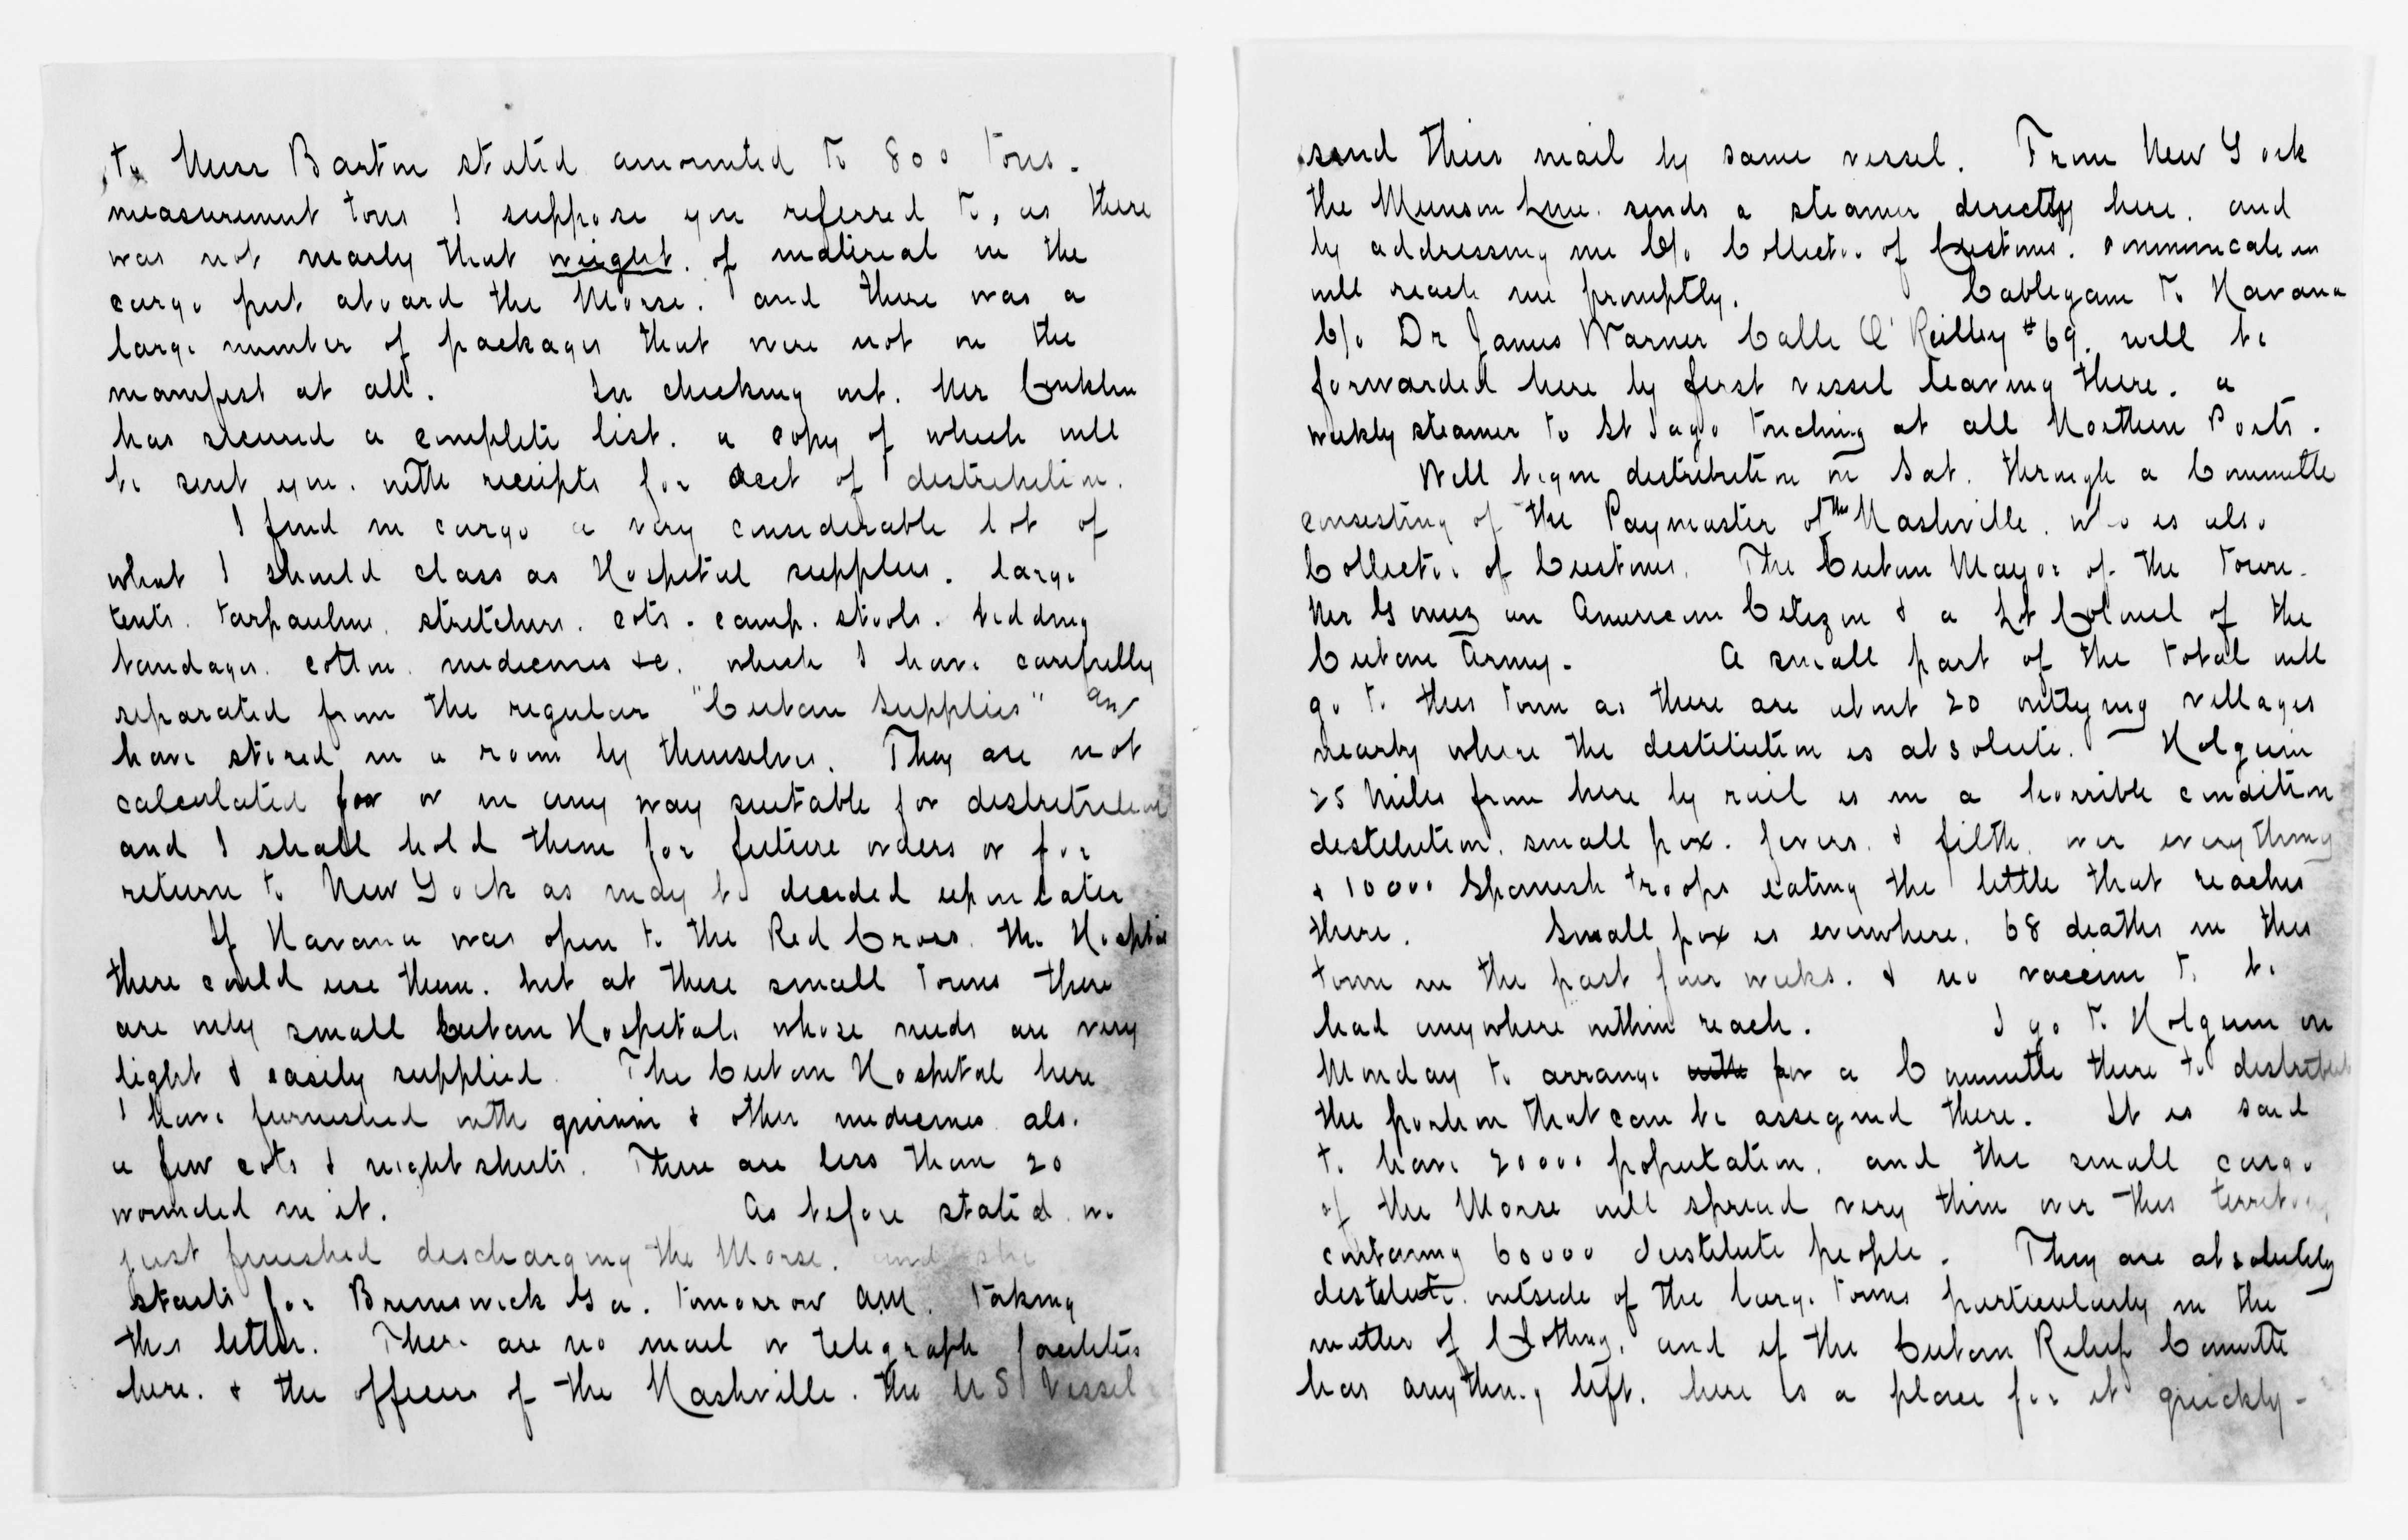 to Miss Barton stated amounted to 800 tons.
measurement tons I suppose you referred to, as there
was not nearly that weight. of matireal in the
cargo put aboard the Morse. and there was a
large number of packages that were not on the
manifest at all. In checking out. Mr Conklin
has secured a complete list. a copy of which will
be sent you. with receipts for acct of distribution.
I find in cargo a very considerable lot of
what I should class as Hospital supplies. large
tents. tarpaulins. stretchers. cots. camp. stools. bedding
bandages. cotton. medicines &c. which I have carefully
separated from the regular "Cuban Supplies" and
have stored in a room by themselves. They are not
calculated for or in any way suitable for distribution
and I shall hold them for future orders or for
return to New York as may be decided upon later
If Havana was open to the Red Cross. the Hospital
there could use them. but at these small towns there
are only small Cuban Hospitals whose needs are very
light & easily supplied. The Cuban Hospital here
I have furnished with quinin & other medicines also
a few cots & night shirts. There are less than 20
wounded in it. As before stated. we
just finished discharging the Morse. and she
starts for Brunswick Ga. tomorrow AM. taking
this letter. There are no mail or telegraph facilities
here. & the officers of the Nashville. the US Vessel
send their mail by same vessel. From New York
the Munson Line. sends a steamer directly here. and
by addressing me C/o Collector of Customs. communication
will reach me promptly. Cablegam to Havana
C/o Dr James Warner Calle O'Reilley #69. will be
forwarded here by first vessel leaving there. a
weekly steamer to St Jago touching at all Northern Ports.
Will begin distribution on Sat. through a Committe
consisting of the Paymaster of the Nashville. who is also
Collector of Customs. The Cuban Mayor of the town.
Mr Gomez an American Citizen & a Lt Colonel of the
Cuban Army. A small part of the total will
go to this town as there are about 20 outlying villages
nearby where the destitution is absolute. Holguin
25 Miles from here by rail is in a horrible condition
destitution. small pox. fevers. & filth. over everything
& 10000 Spanish troops eating the little that reaches
there. Small pox is everwhere. 68 deaths in this
town in the past four weeks. & no vaccine to be
had anywhere within reach. I go to Holguin on
Monday to arrange with for a Committe there to distribute
the portion that can be assigned there. It is said
to have 20000 population. and the small cargo
of the Morse will spread very thin over this territory
containing 60000 destitute people. They are absolutely
destitute. outside of the large towns particularly in the
matter of Clothing. and if the Cuban Relief Committe
has anything left. here is a place for it quickly-